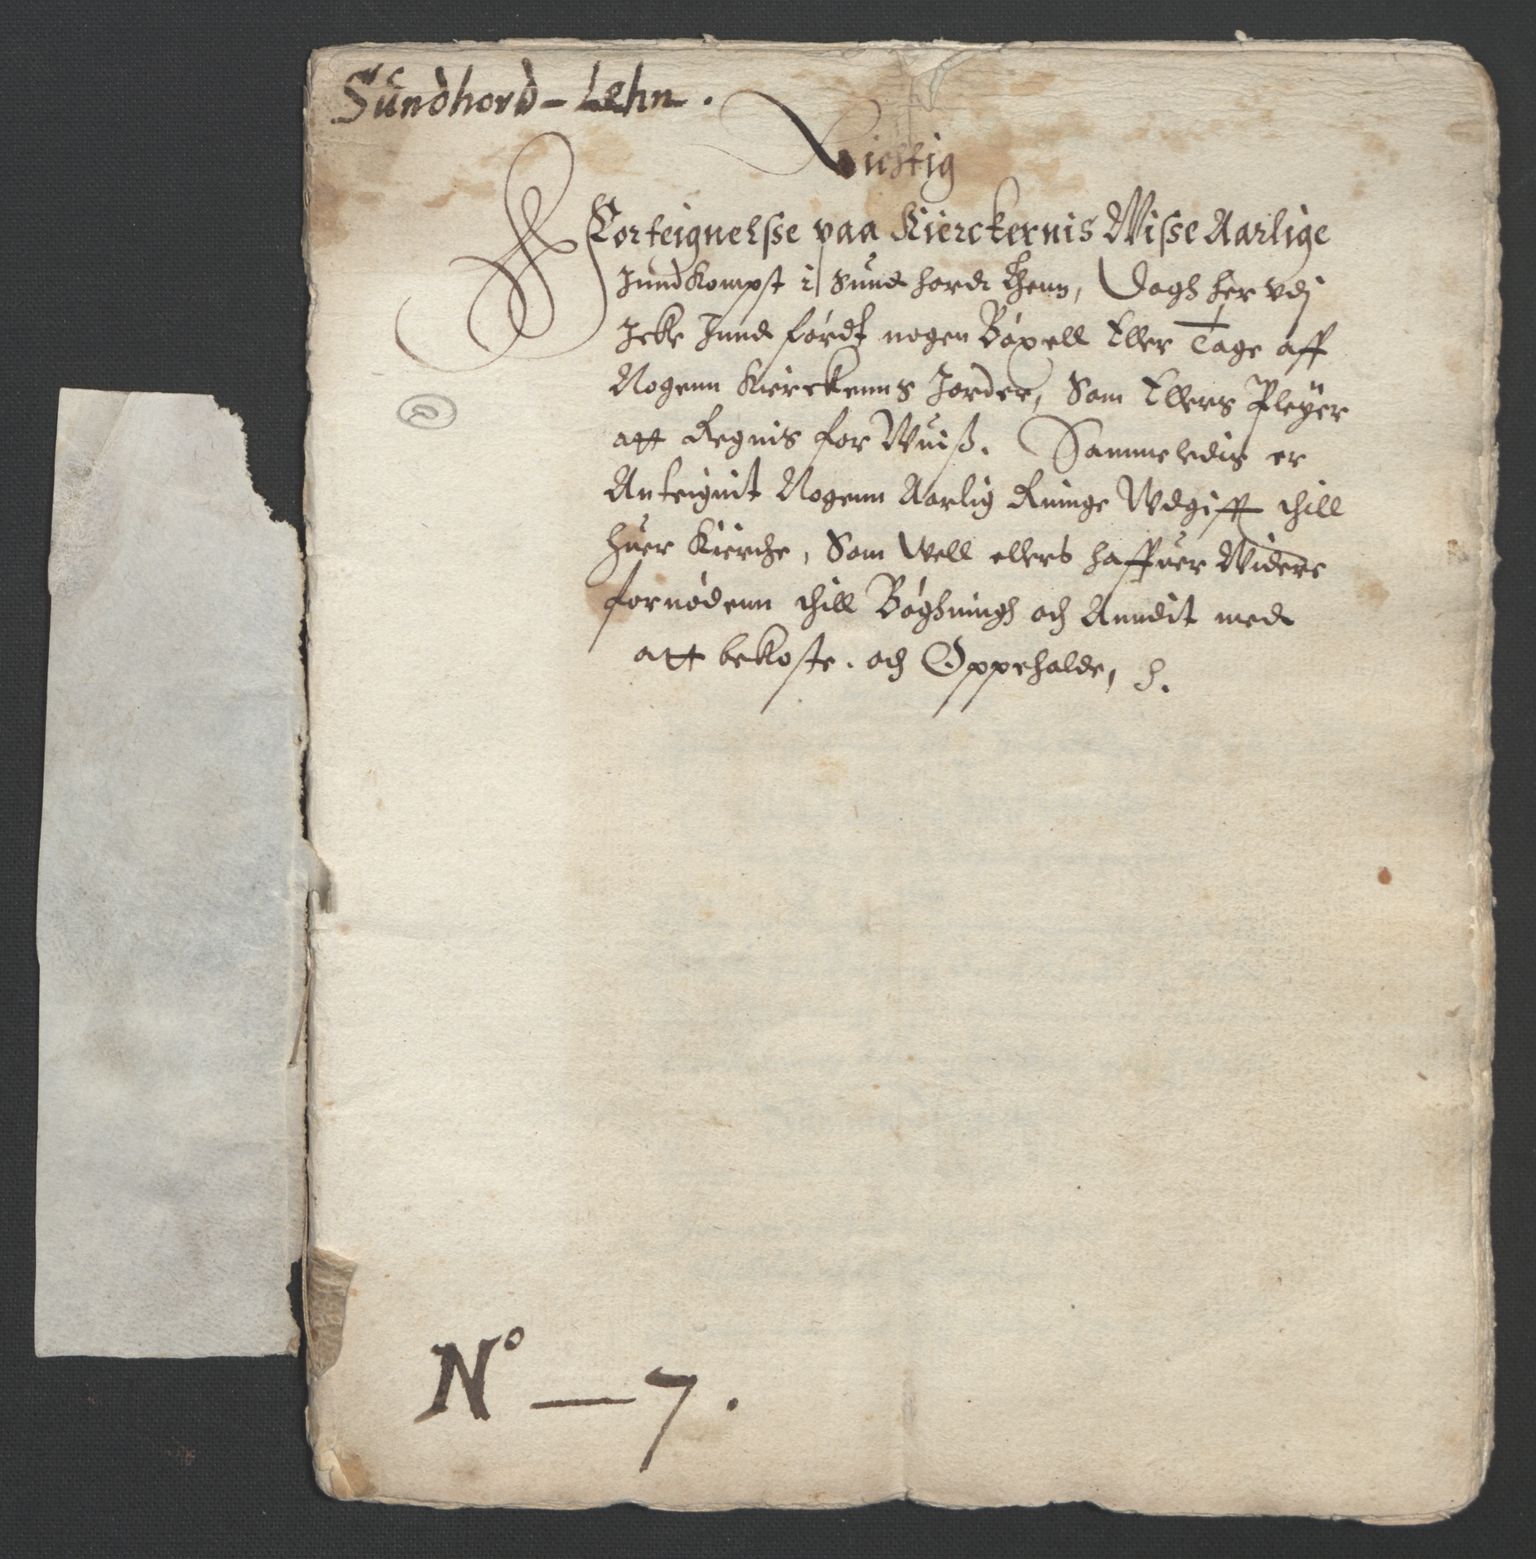 Sundhord-Lehn.
Richtig
Forteignelsse paa Kierckernis Wisse Aarlige
Jundkompst i Sund hord Lhenn, Dogh her vdj
Icke Jnnd førdt nogen Bøxell Eller Tage aff
Nogenn Kierckenns Jorder, Som Ellers Pleyer
att Regnis for Wuiß. Sammeledis er
Anteignit Nogenn Aarlig Ringe Wdgifft thill
huer Kierche, Som Well ellers haffuer Widere
fornødenn thill Bøghningh och Anndit med
att bekoste. och Oppeholde,
No — 7.